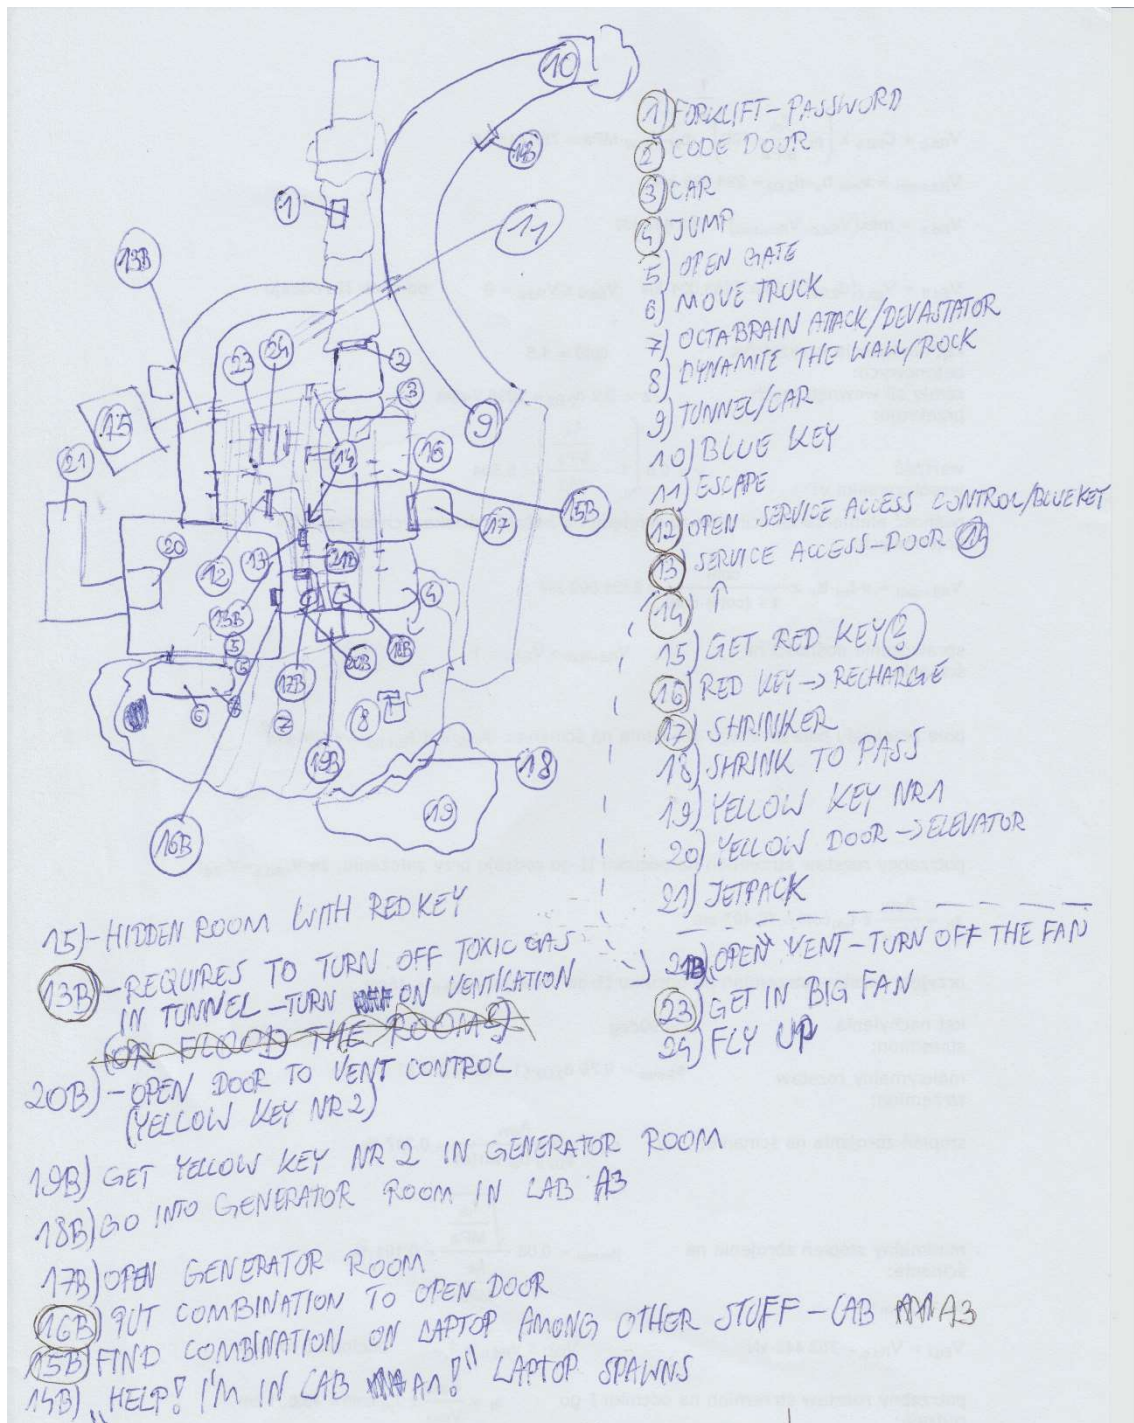 10
14B
1
11
13B
2
23
24
3
15
9
21
14
16
17
15B
20
12
13
21B
13B
4
5
5
20B
18B
17B
6
7
8
19B
18
19
16B
1) FORKLIFT-PASSWORD
2) CODE DOOR
3) CAR
4) JUMP
5) OPEN GATE
6) MOVE TRUCK
7) OCTABRAIN ATTACK/DEVASTATOR
8) DYNAMITE THE WALL/ROCK
9) TUNNEL/CAR
10) BLUE KEY
11) ESCAPE
12) OPEN SERVICE ACCESS CONTROL/BLUEKEY
13) SERVICE ACCESS-DOOR 14
14)
15) GET RED KEY
16) RED KEY → RECHARGE
17) SHRINKER
18) SHRINK TO PASS
19) YELLOW KEY NR1
20) YELLOW DOOR → ELEVATOR
21) JETPACK
21B) OPEN VENT-TURN OFF THE FAN
23) GET IN BIG FAN
24) FLY UP
15)-HIDDEN ROOM WITH RED KEY
13B)-REQUIRES TO TURN OFF TOXIC GAS
IN TUNNEL-TURN ON VENTILATION
(OR FLOOD THE ROOMS)
20B)-OPEN DOOR TO VENT CONTROL
(YELLOW KEY NR2)
19B) GET YELLOW KEY NR 2 IN GENERATOR ROOM
18B) GO INTO GENERATOR ROOM IN LAB A3
17B) OPEN GENERATOR ROOM
16B) PUT COMBINATION TO OPEN DOOR
15B) FIND COMBINATION ON LAPTOP AMONG OTHER STUFF-LAB A3
14B) "HELP! I'M IN LAB A1!" LAPTOP SPAWNS